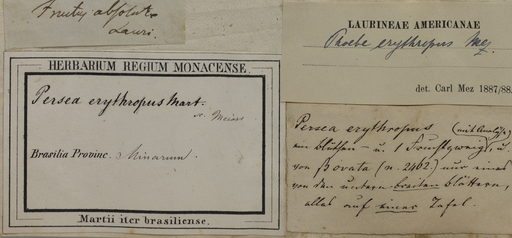 Fructus absolut.
Lauri.
HERBARIUM REGIUM MONACENSE.
Persea erythropus Mart.
Brasilia Provinc. Minarum.
Martii iter brasiliense.
LAURINEAE AMERICANAE
Phoebe erythropus Mez
det. Carl Mez 1887/88.
Persea erythropus (mit Analyse)
ein blüthen- u. 1 Fruchtzweig, u
von β ovata (n. 2462.) nur eines
von den untern breiten blättern,
alles auf einer Tafel.